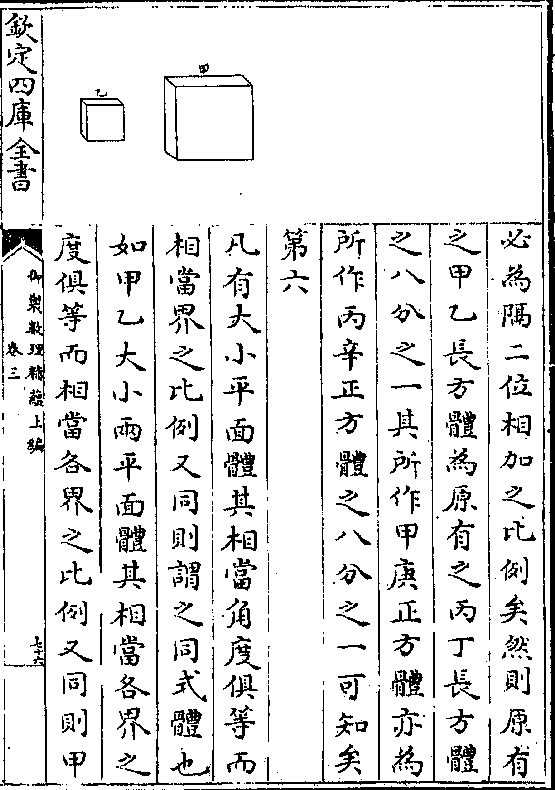 必為隔二位相加之比例矣然則原有
之甲乙長方體為原有之丙丁長方體
之八分之一其所作甲庚正方體亦為
所作丙辛正方體之八分之一可知矣
第六
凡有大小平面體其相當角度俱等而
相當界之比例又同則謂之同式體也
如甲乙大小兩平面體其相當各界之
度俱等而相當各界之比例又同則甲
甲
乙
欽定四庫全書
御製數理精蘊上編
卷三